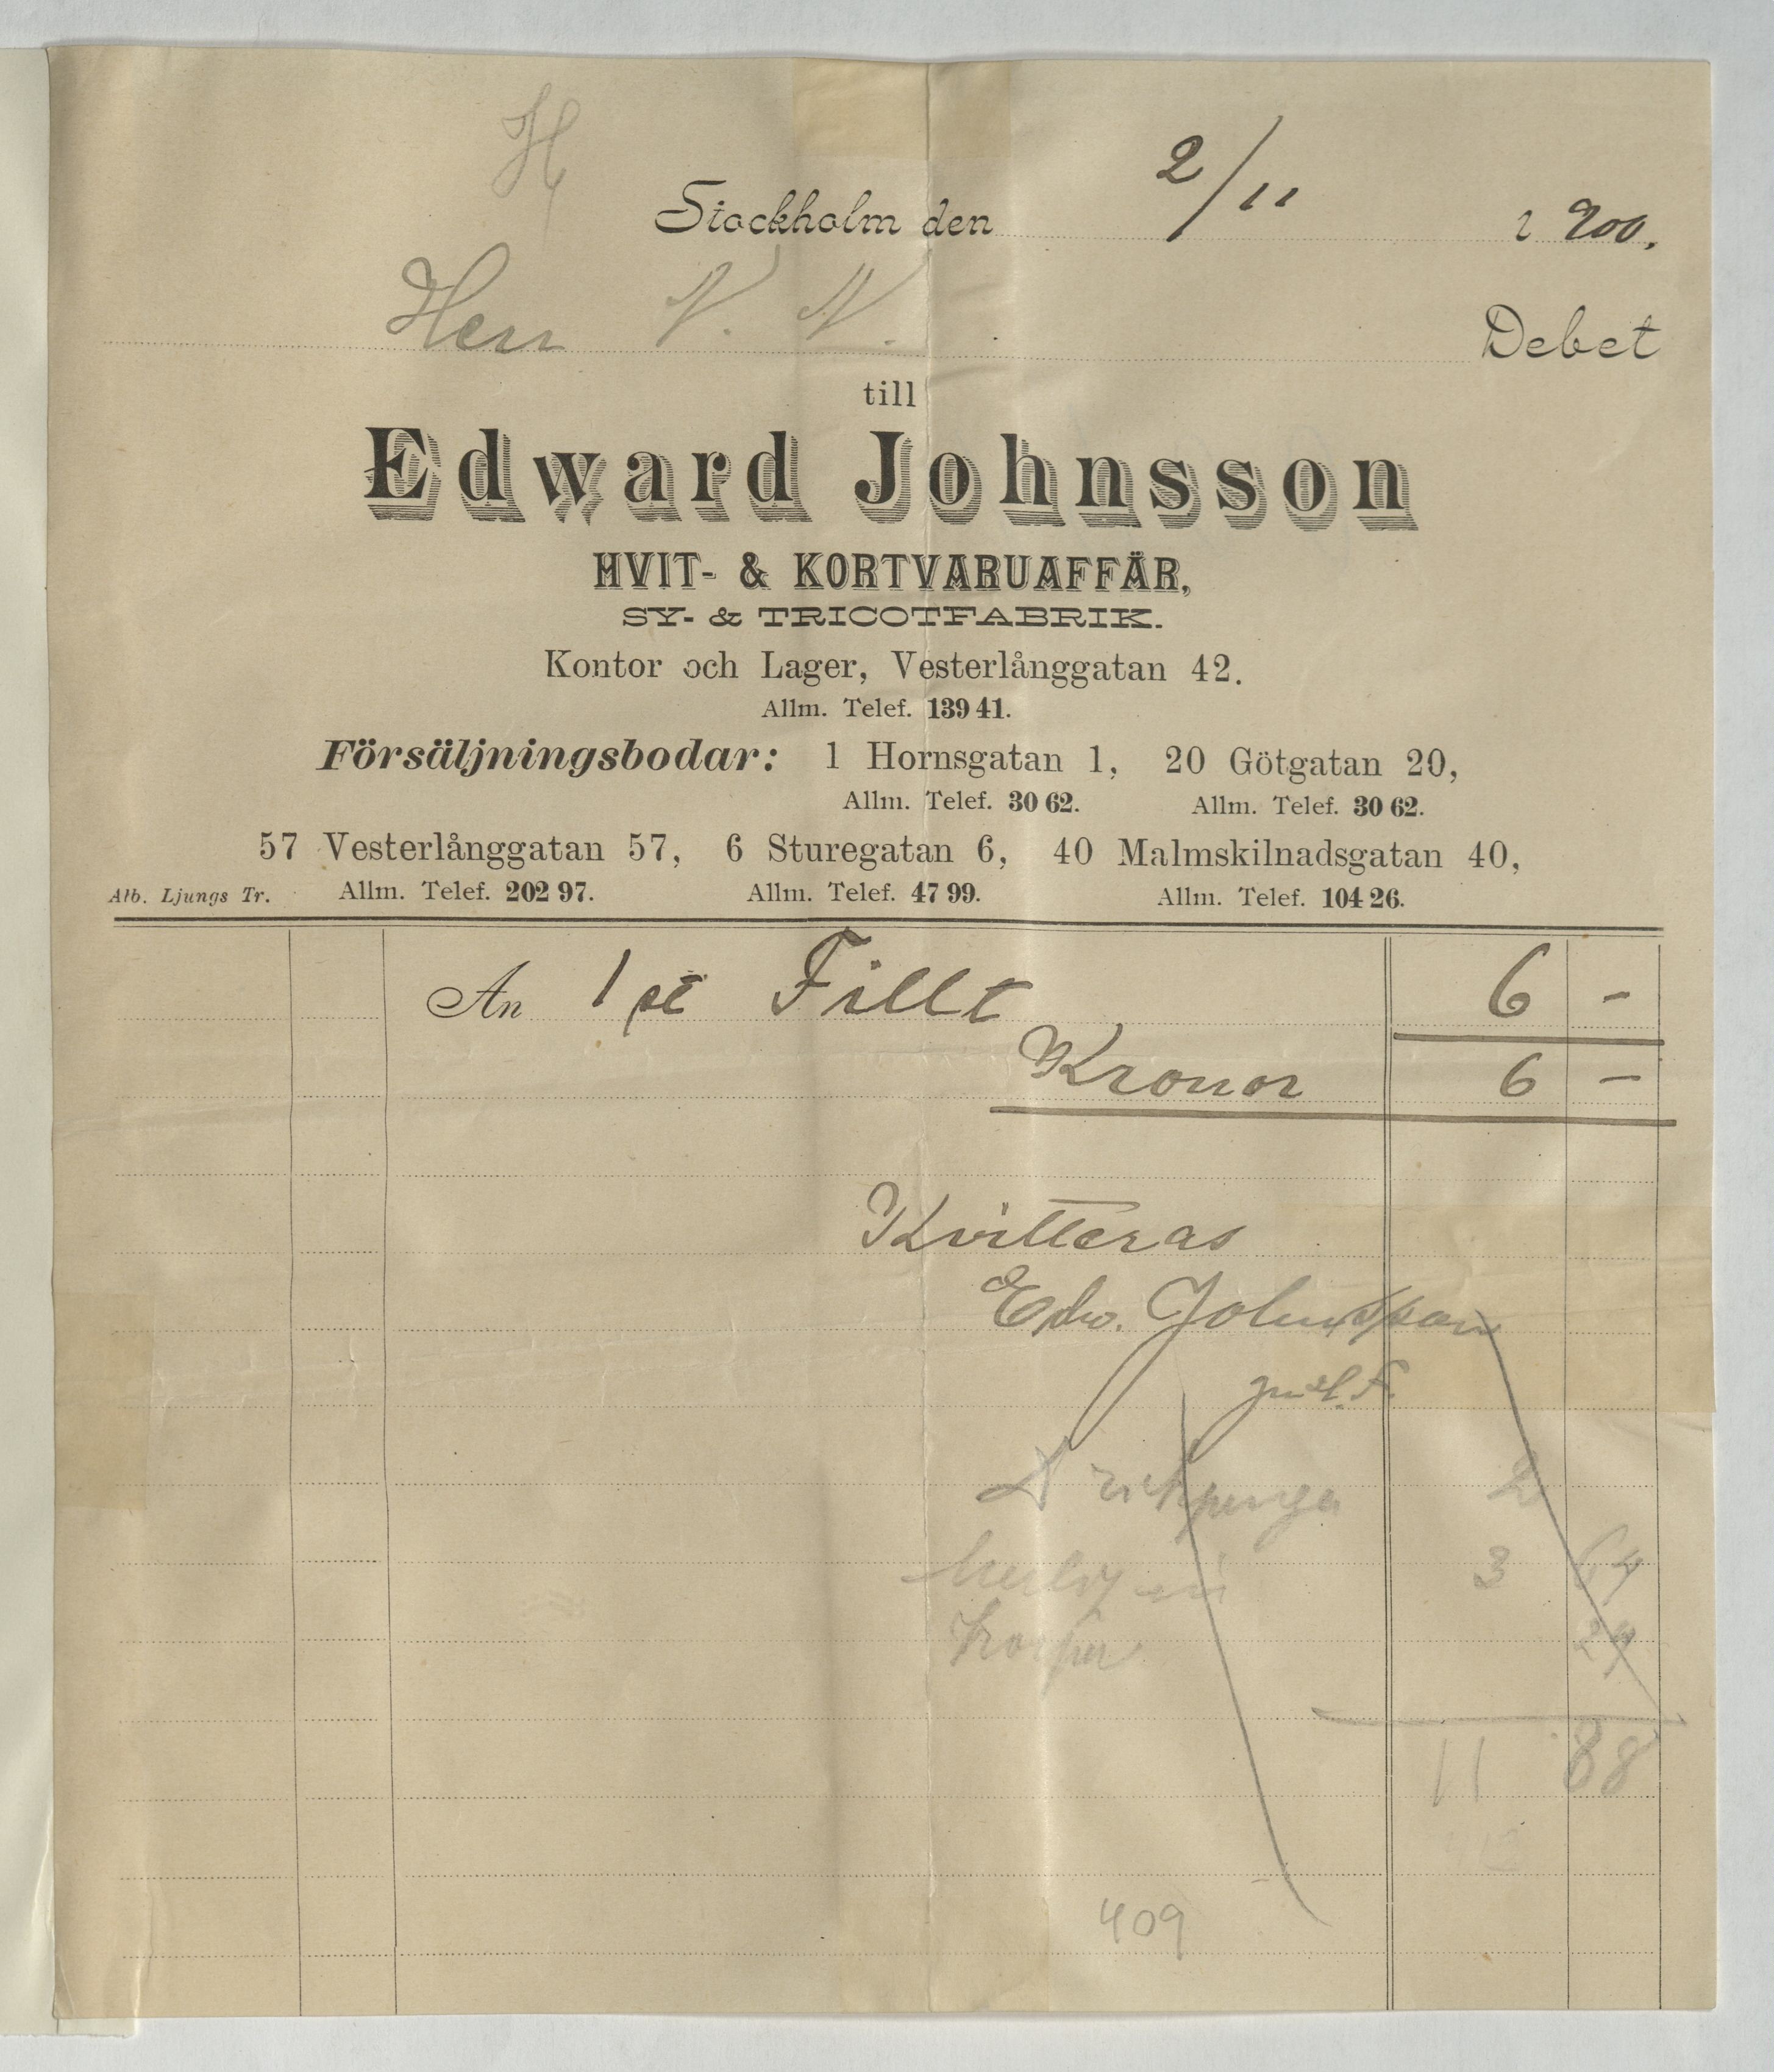 H
Stockholm den 2/11 1900.
Herr N. N. Debet
till
Edward Johnsson
HVIT- & KORTVARUAFFÄR,
SY- & TRICOTFABRIK.
Kontor och Lager, Vesterlånggatan 42.
Allm. Telef. 139 41.
Försäljningsbodar: 1 Hornsgatan 1, 20 Götgatan 20,
Allm. Telef. 30 62. Allm. Telef. 30 62.
57 Vesterlånggatan 57, 6 Sturegatan 6, 40 Malmskilnadsgatan 40,
Alb. Ljungs Tr. Allm. Telef. 202 97. Allm. Telef. 47 99. Allm. Telef. 104 26.
An 1 st Fillt 6 -
Kronor 6 -
Kvitteras
Edw. Johnsson
2
3 64
24
11 88
409